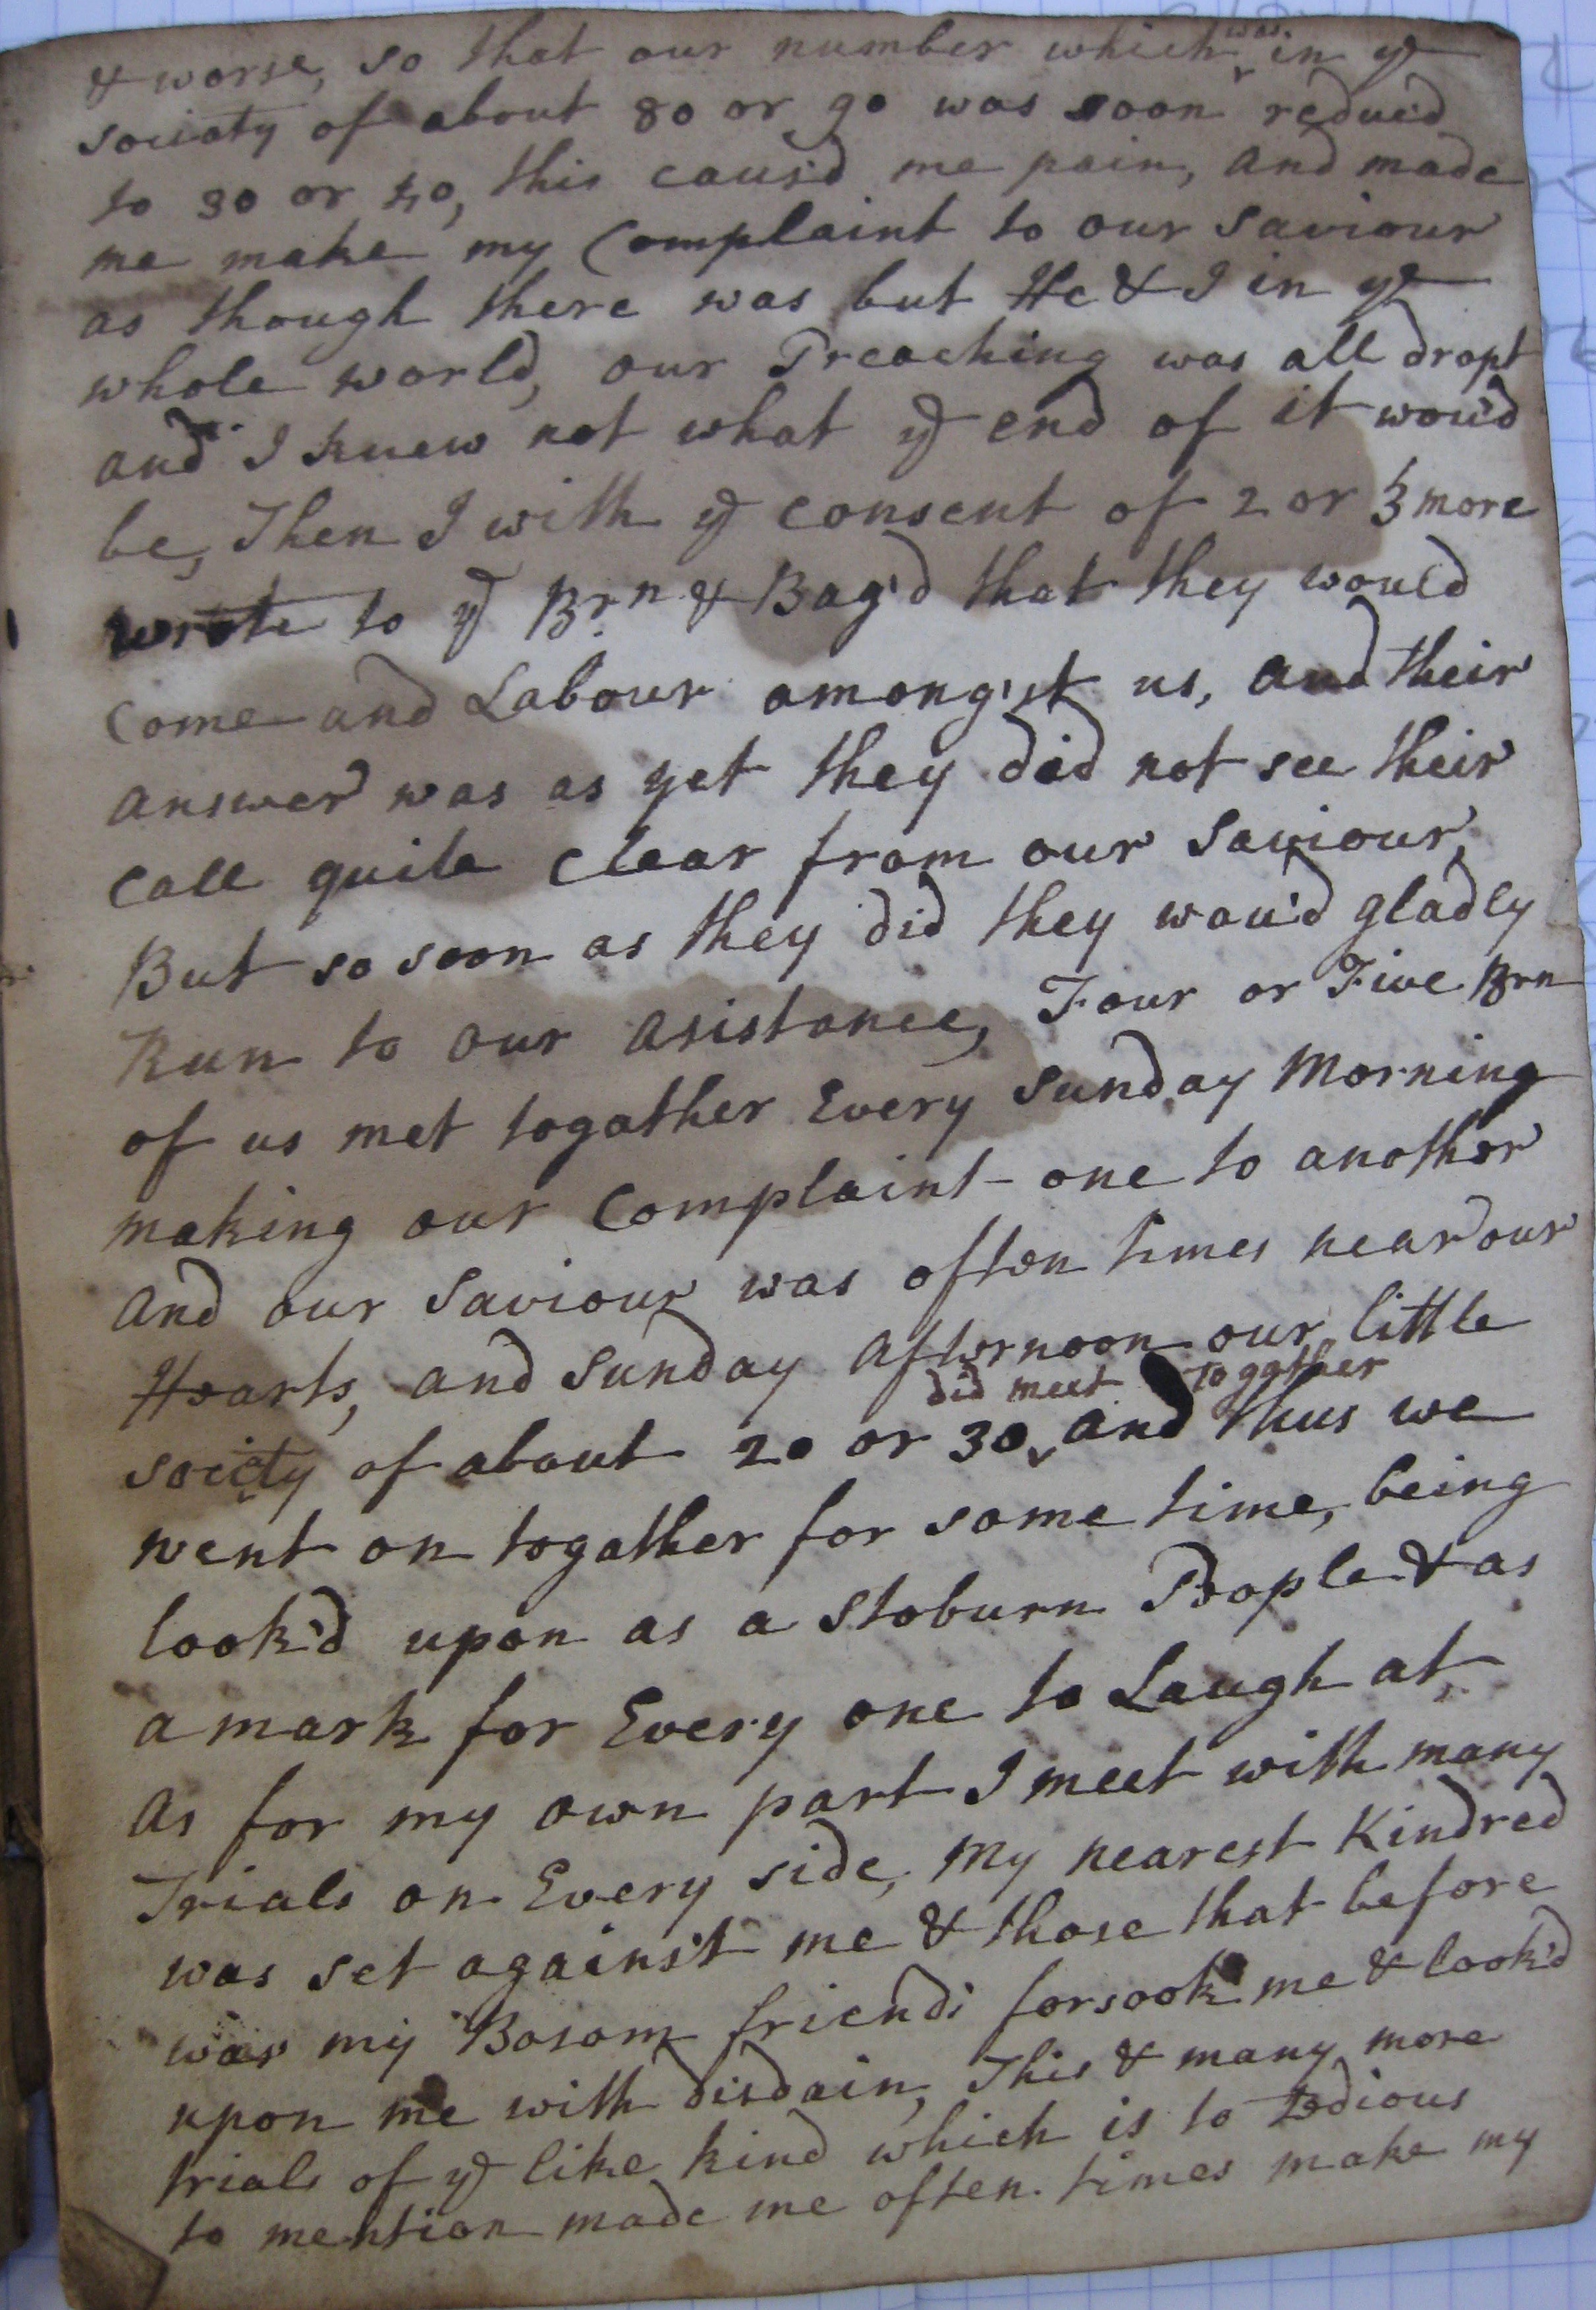 & worse, so that our number which was in ye
sociaty of about 80 or 90 was soon reduc'd
to 30 or 40, this caus'd me pain, and made
me make my Complaint to our Saviour
as though there was but He & I in ye
whole world, our Preaching was all dropt
and I knew not what ye end of it wou'd
be, Then I with ye consent of 2 or 3 more
wrote to ye Brn & Bag'd that they would
Come and Labour amongst us, and their
answer was as yet they did not see their
Call quite Clear from our Saviour,
But so soon as they did they wou'd gladly
Run to our asistance, Four or Five Brn
of us met togather Every Sunday Morning
making our Complaint one to another
and our Saviour was often times near our
Hearts, and Sunday afternoon our little
did meet Togather
society of about 20 or 30, and thus we
went on togather for some time, being
look'd upon as a Stoburn People & as
a mark for Every one to Laugh at,
as for my own part I meet with many
Trials on Every side, My nearest Kindred
was set against me & those that before
was my Bosom friends forsook me & look'd
upon me with disdain, This & many more
trials of ye like kind which is to tedious
to mention made me often times make my